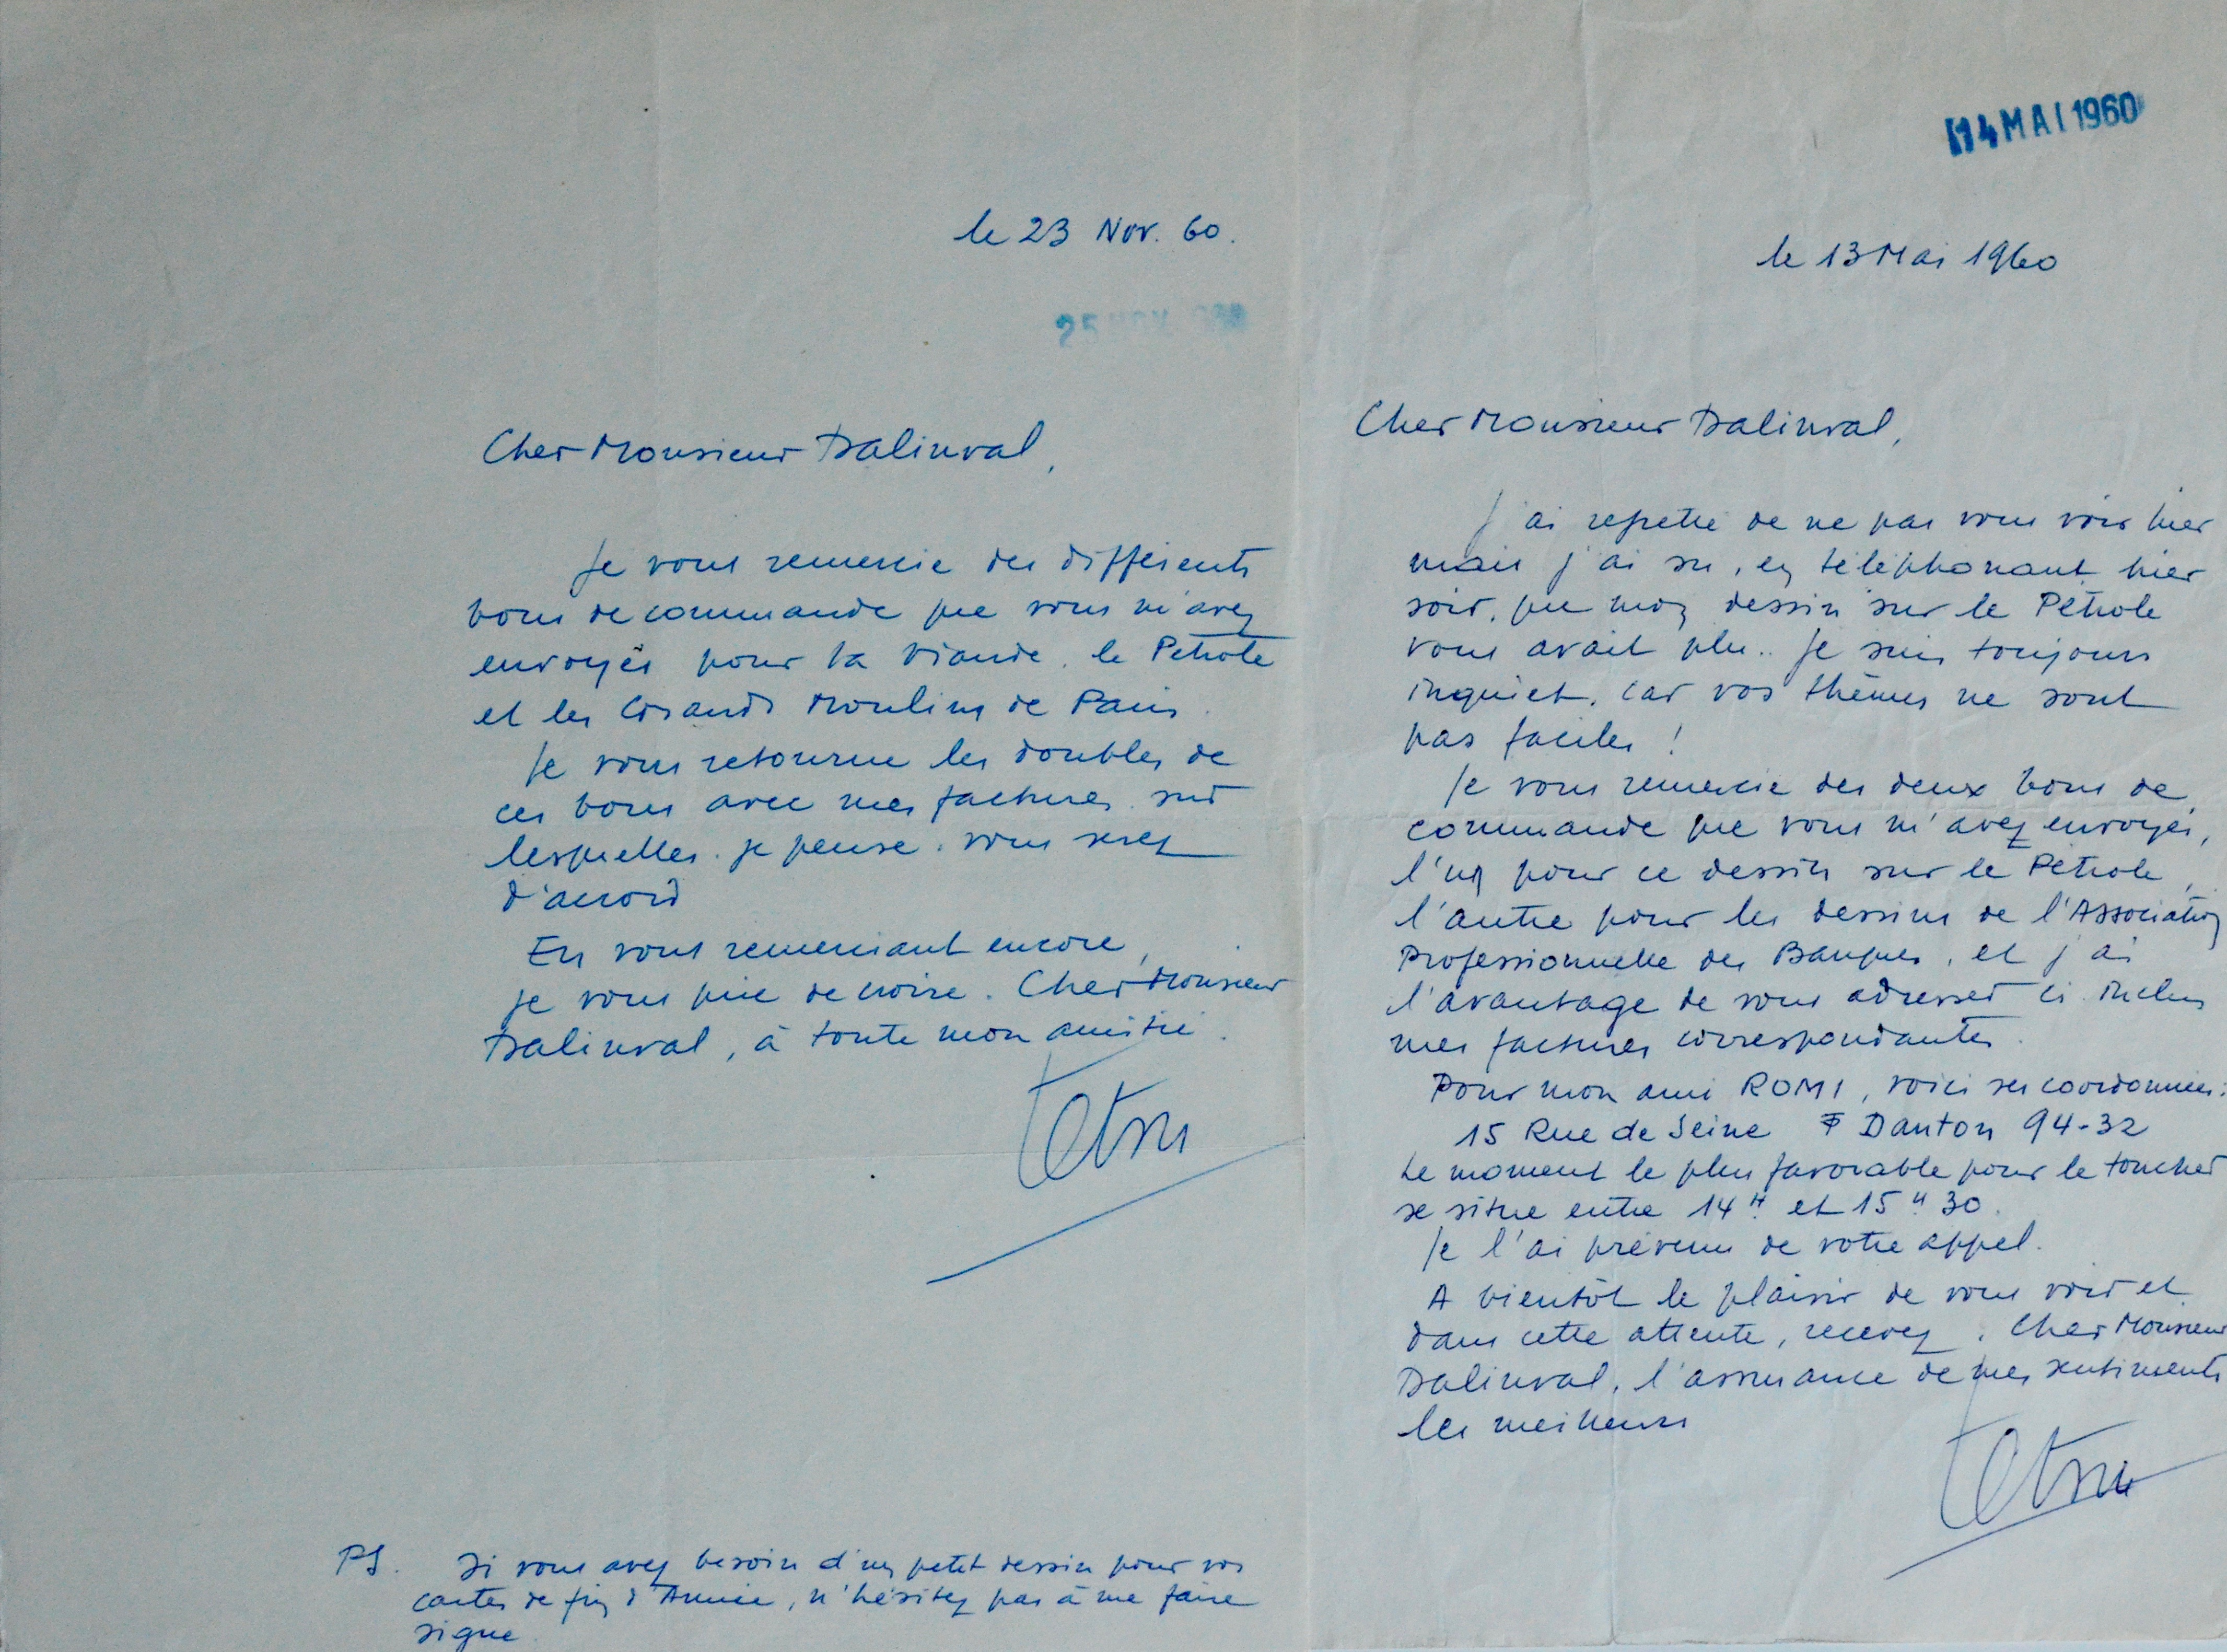 le 23 Nov. 60.
25 NOV
Cher Monsieur Dalinval,
Je vous remercie des différents
bons de commande que vous m'avez
envoyés pour la Viande, le Pétrole
et les Grands Moulins de Paris.
Je vous retourne les doubles de
ces bons avec mes factures sur
lesquelles, je pense, vous serez
d'accord
En vous remerciant encore,
je vous prie de croire, Cher Monsieur
Dalinval, à toute mon amitié.
Tetsu
PS. Si vous avez besoin d'un petit dessin pour vos
cartes de fin d'Année, n'hésitez pas à me faire
signe.
14 MAI 1960
le 13 Mai 1960
Cher Monsieur Dalinval,
J'ai regretté de ne pas vous voir hier
mais j'ai su, en téléphonant hier
soir, que mon dessin sur le Pétrole
vous avait plu.. Je suis toujours
inquiet, car vos thèmes ne sont
pas faciles !
Je vous remercie des deux bons de
commande que vous m'avez envoyés,
l'un pour ce dessin sur le Pétrole,
l'autre pour les dessins de l'Association
Professionnelle des Banques, et j'ai
l'avantage de vous adresser ci inclus
mes factures correspondantes.
Pour mon ami ROMI, voici ses coordonnées:
15 Rue de Seine Danton 94-32
Le moment le plus favorable pour le toucher
se situe entre 14 H et 15 H 30.
Je l'ai prévenu de votre appel.
A bientôt le plaisir de vous voir et
dans cette attente, recevez, Cher Monsieur
Dalinval, l'assurance de mes sentiments
les meilleurs
Tetsu